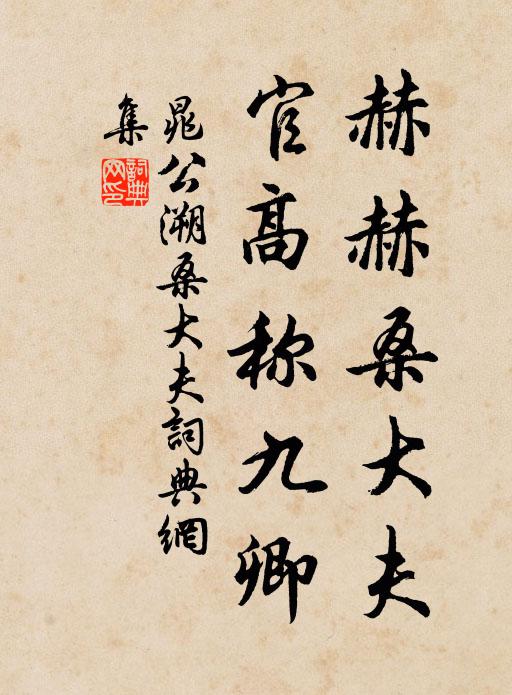 赫赫桑大夫
官高称九卿
晁公溯桑大夫詞典網
集
詞典網印